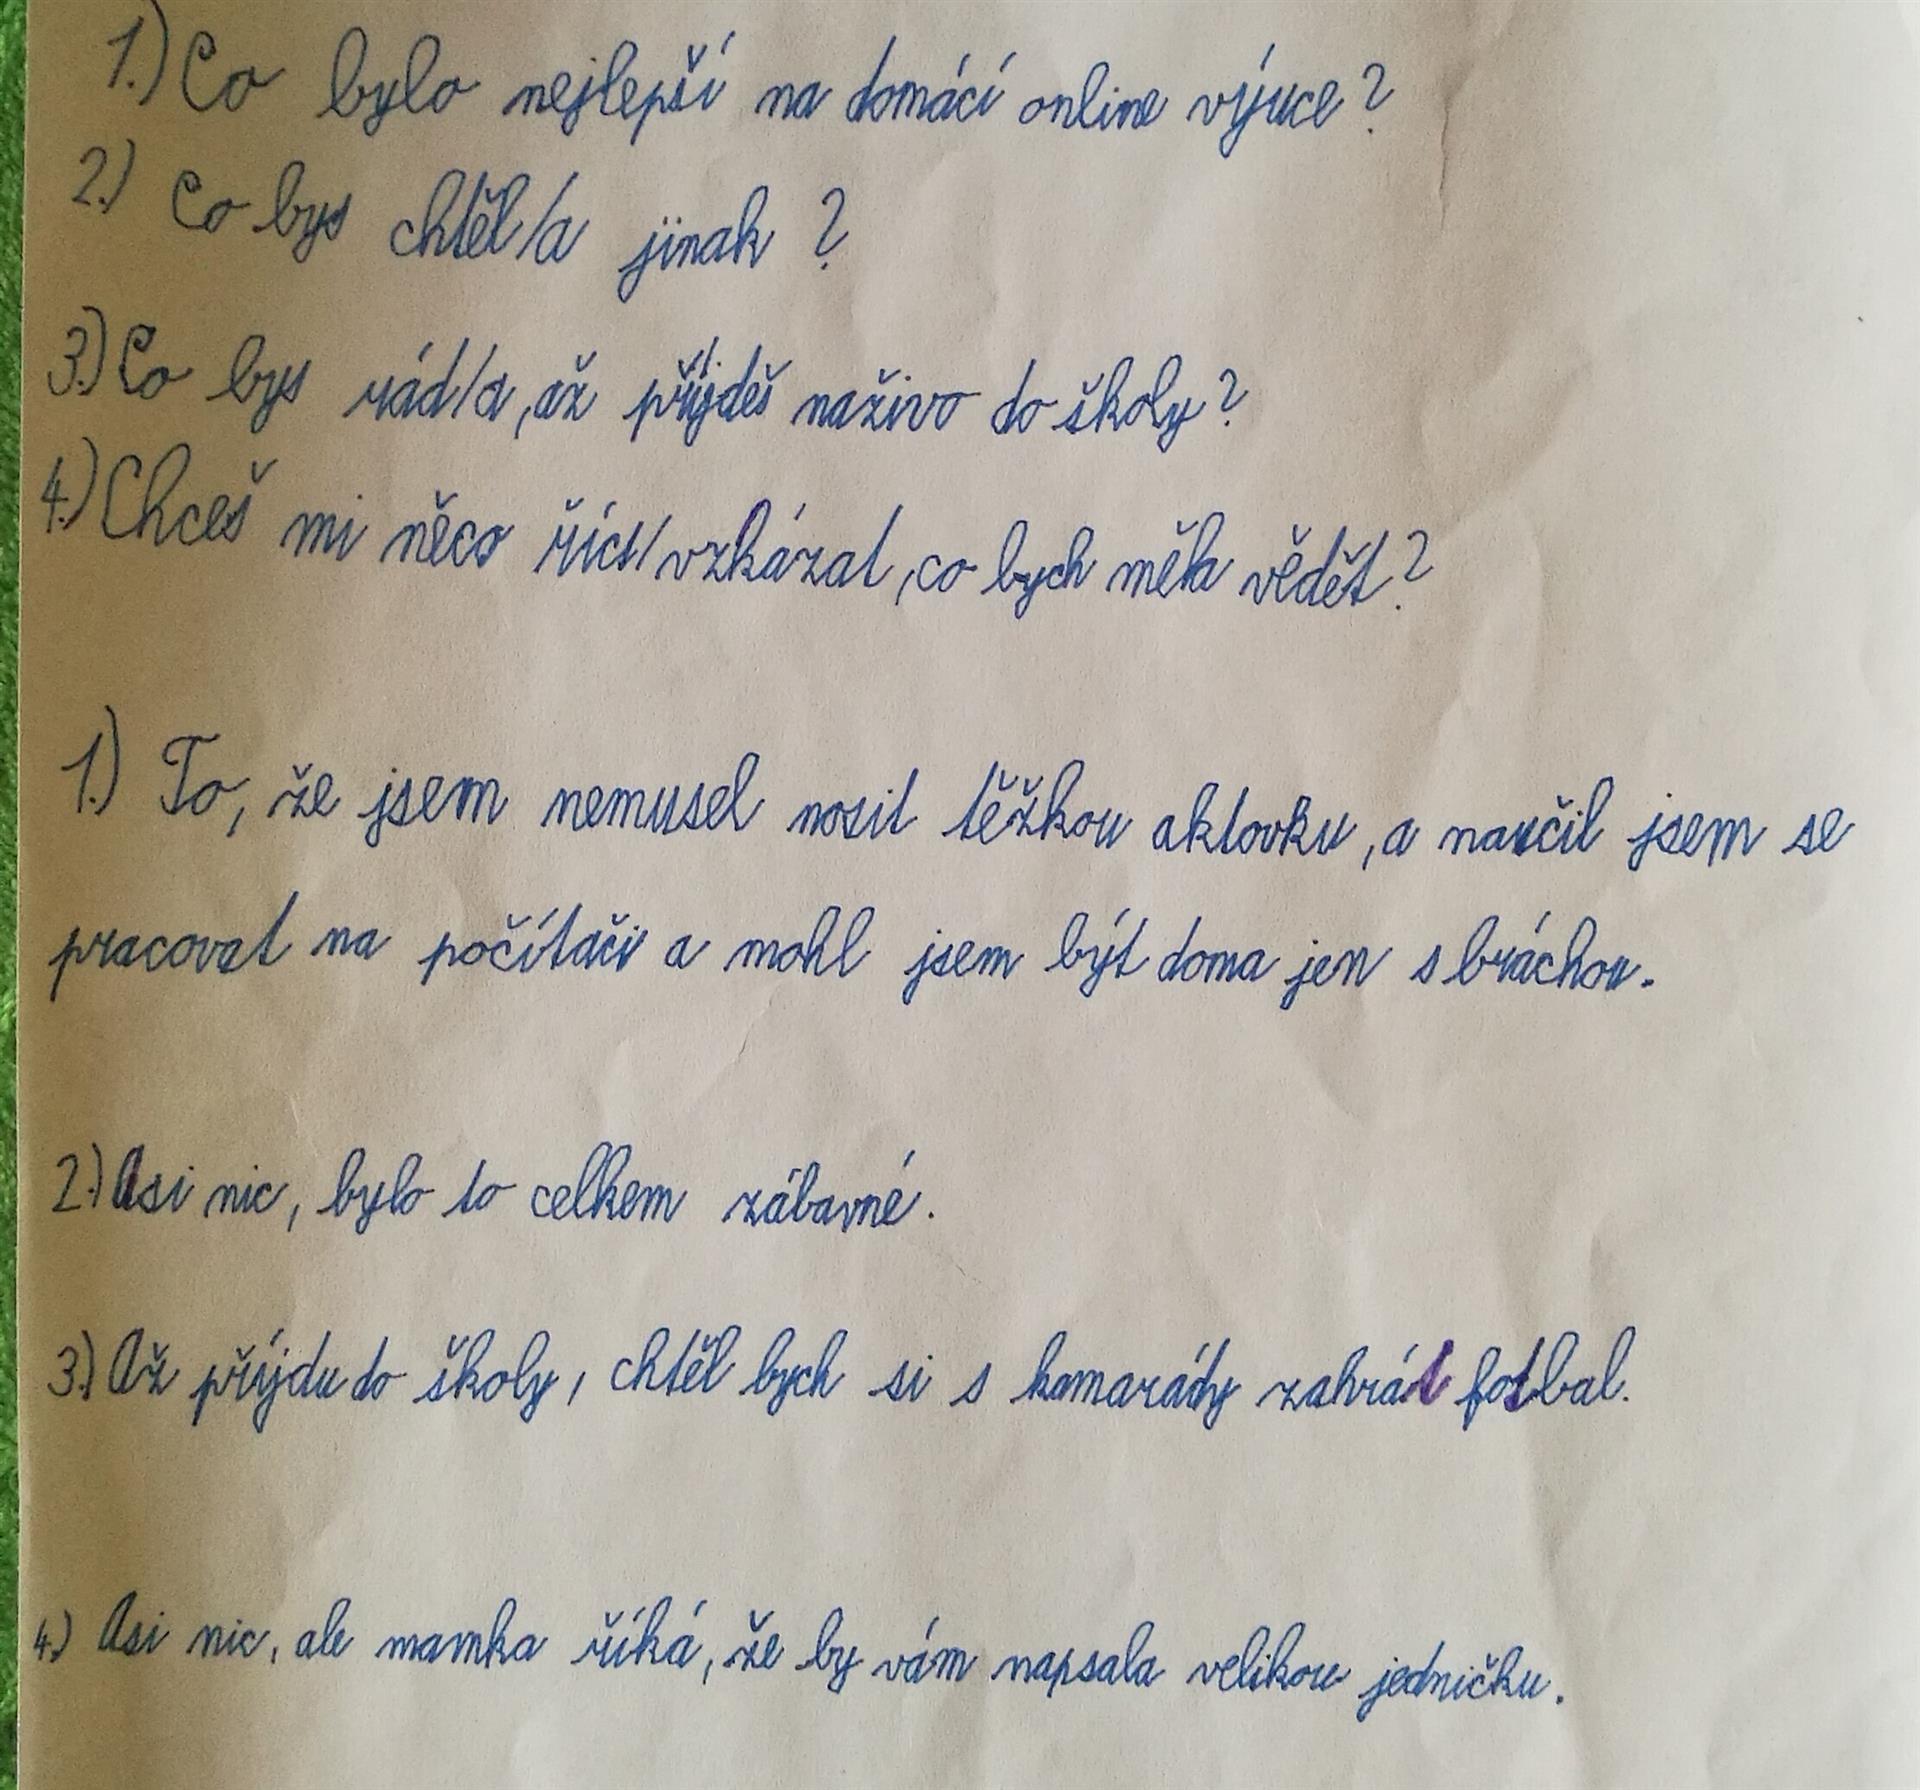 1.) Co bylo nejlepší na domácí online výuce?
2.) Co bys chtěl/a jinak ?
3.) Co bys rád/a, až příjdeš naživo do školy?
4.) Chceš mi něco říct/vzkázat, co bych měla vědět?
1.) To, že jsem nemusel nosit těžkou aktovku, a naučil jsem se
pracovat na počítači a mohl jsem být doma jen s bráchou.
2.) Asi nic, bylo to celkem zábavné.
3.) Až příjdu do školy, chtěl bych si s kamarády zahrát fotbal.
4.) Asi nic, ale mamka říká, že by vám napsala velikou jedničku.